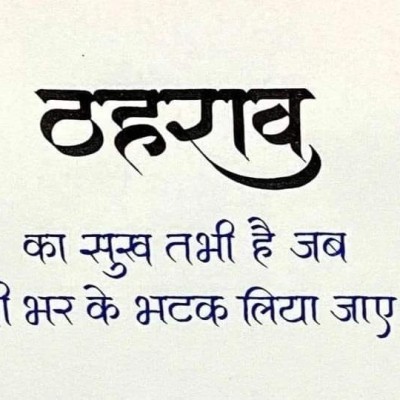 ठहराव
का सुख तभी है जब
भर के भटक लिया जाए